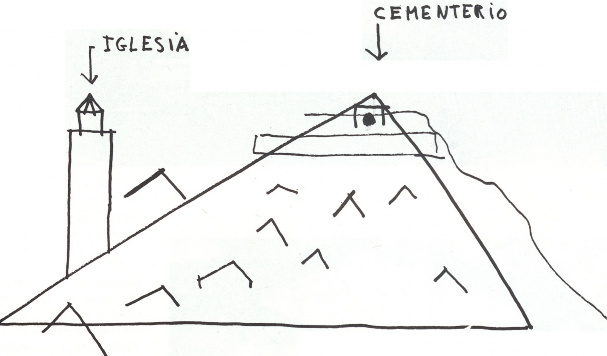 IGLESIA
CEMENTERIO